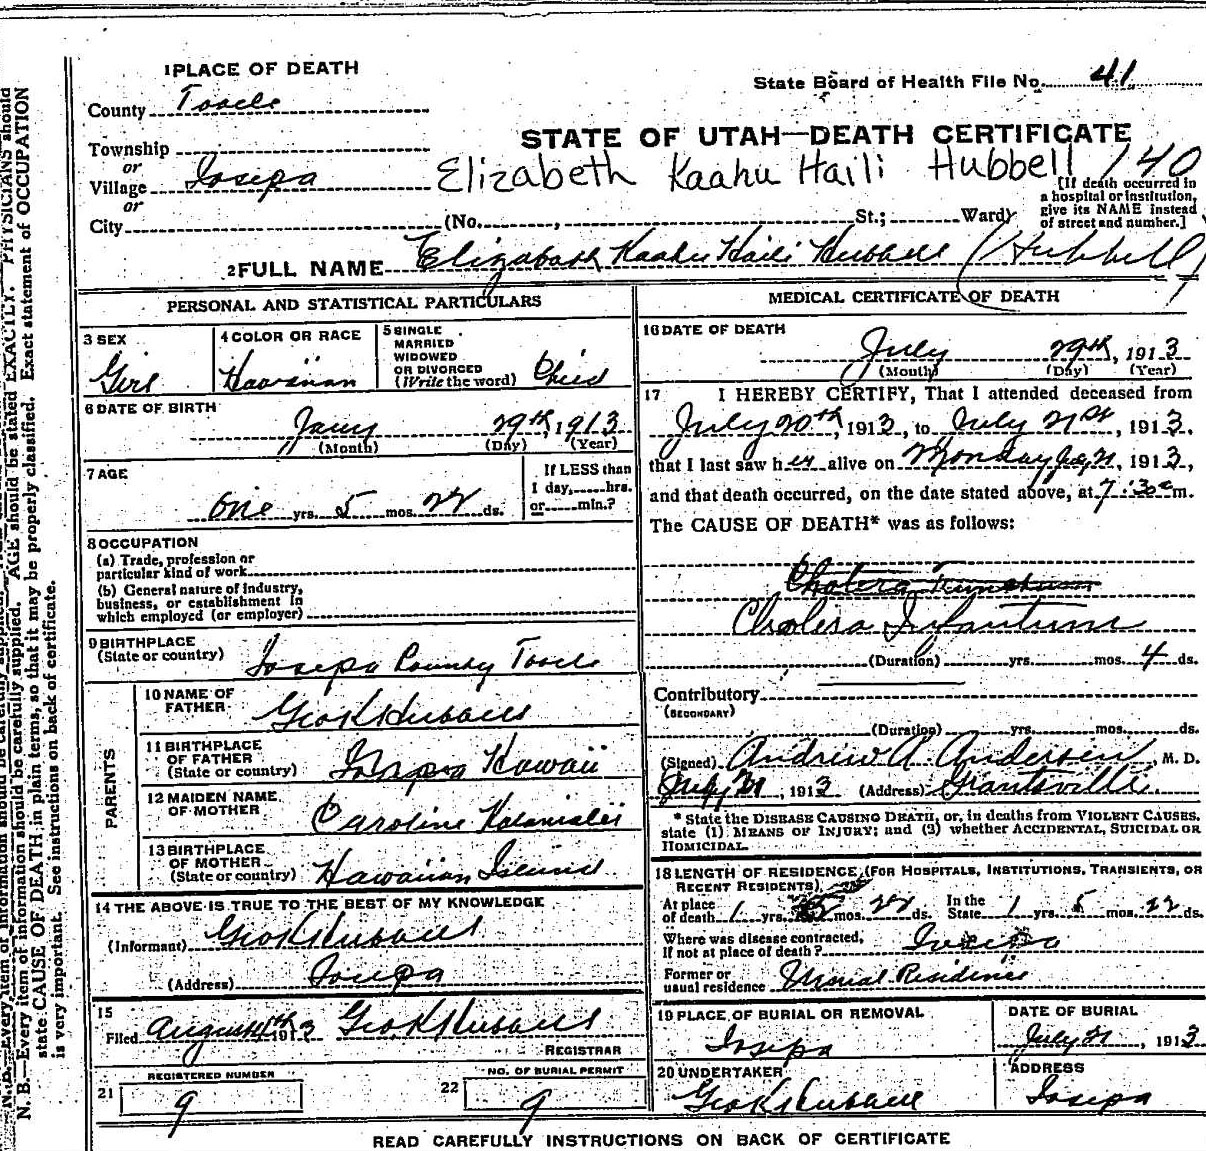 1 PLACE OF DEATH
State Board of Health File No. 41
County Tooele
STATE OF UTAH—DEATH CERTIFICATE
Township
or
Village Iosepa
Elizabeth Kaahu Haili Hubbell 140
or
City (No. , St.; Ward)
[If death occurred in
a hospital or institution,
give its NAME instead
of street and number.]
2 FULL NAME Elizabeth Kaahu Haili Hubbell (Hubbell)
PERSONAL AND STATISTICAL PARTICULARS
3 SEX
Girl
4 COLOR OR RACE
Hawaiian
5 SINGLE
MARRIED
WIDOWED
OR DIVORCED
(Write the word) Child
6 DATE OF BIRTH
Jany 29th, 1913
(Month) (Day) (Year)
7 AGE
one yrs. 5 mos. 22 ds.
If LESS than
1 day, hrs.
or min.?
8 OCCUPATION
(a) Trade, profession or
particular kind of work
(b) General nature of industry,
business, or establishment in
which employed (or employer)
9 BIRTHPLACE
(State or country) Iosepa County Tooele
PARENTS
10 NAME OF
FATHER Geo K Hubbell
11 BIRTHPLACE
OF FATHER
(State or country) Hawaii
12 MAIDEN NAME
OF MOTHER Caroline
13 BIRTHPLACE
OF MOTHER
(State or country) Hawaiian Island
14 THE ABOVE IS TRUE TO THE BEST OF MY KNOWLEDGE
(Informant) Geo K Hubbell
(Address) Iosepa
15
Filed August 1913 Geo K Hubbell
REGISTRAR
REGISTERED NUMBER
21 9
NO. OF BURIAL PERMIT
22 9
MEDICAL CERTIFICATE OF DEATH
16 DATE OF DEATH
July 29th, 1913
(Month) (Day) (Year)
17 I HEREBY CERTIFY, That I attended deceased from
July 20th, 1913, to July 21st, 1913,
that I last saw her alive on Monday July 21, 1913,
and that death occurred, on the date stated above, at 7:30 a m.
The CAUSE OF DEATH* was as follows:
Cholera
Cholera Infantum
(Duration) yrs. mos. 4 ds.
Contributory
(SECONDARY)
(Duration) yrs. mos. ds.
(Signed) Andrew A. Andersen, M. D.
July 21, 1913 (Address) Grantsville.
* State the DISEASE CAUSING DEATH, or, in deaths from VIOLENT CAUSES,
state (1) MEANS OF INJURY; and (2) whether ACCIDENTAL, SUICIDAL OR
HOMICIDAL.
18 LENGTH OF RESIDENCE (FOR HOSPITALS, INSTITUTIONS, TRANSIENTS, OR
RECENT RESIDENTS)
At place
of death 1 yrs. mos. 22 ds.
In the
State 1 yrs. 5 mos. 22 ds.
Where was disease contracted,
If not at place of death? Iosepa
Former or
usual residence Usual Residence
19 PLACE OF BURIAL OR REMOVAL
Iosepa
DATE OF BURIAL
July 21, 1913
20 UNDERTAKER
Geo K Hubbell
ADDRESS
Iosepa
READ CAREFULLY INSTRUCTIONS ON BACK OF CERTIFICATE
N. B.—Every item of information should be carefully supplied. AGE should be stated EXACTLY. PHYSICIANS should
state CAUSE OF DEATH in plain terms, so that it may be properly classified. Exact statement of OCCUPATION
is very important. See instructions on back of certificate.